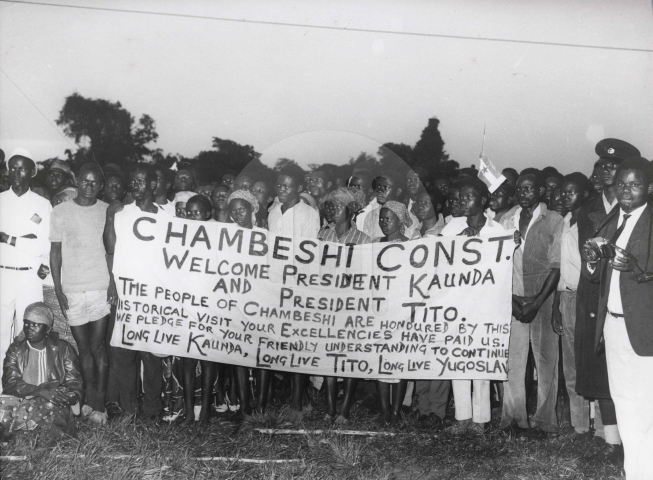 CHAMBESHI CONST.
WELCOME PRESIDENT KAUNDA
AND PRESIDENT TITO.
THE PEOPLE OF CHAMBESHI ARE HONOURED BY THIS
HISTORICAL VISIT YOUR EXCELLENCIES HAVE PAID US.
WE PLEDGE FOR YOUR FRIENDLY UNDERSTANDING TO CONTINUE
LONG LIVE KAUNDA, LONG LIVE TITO, LONG LIVE YUGOSLAV